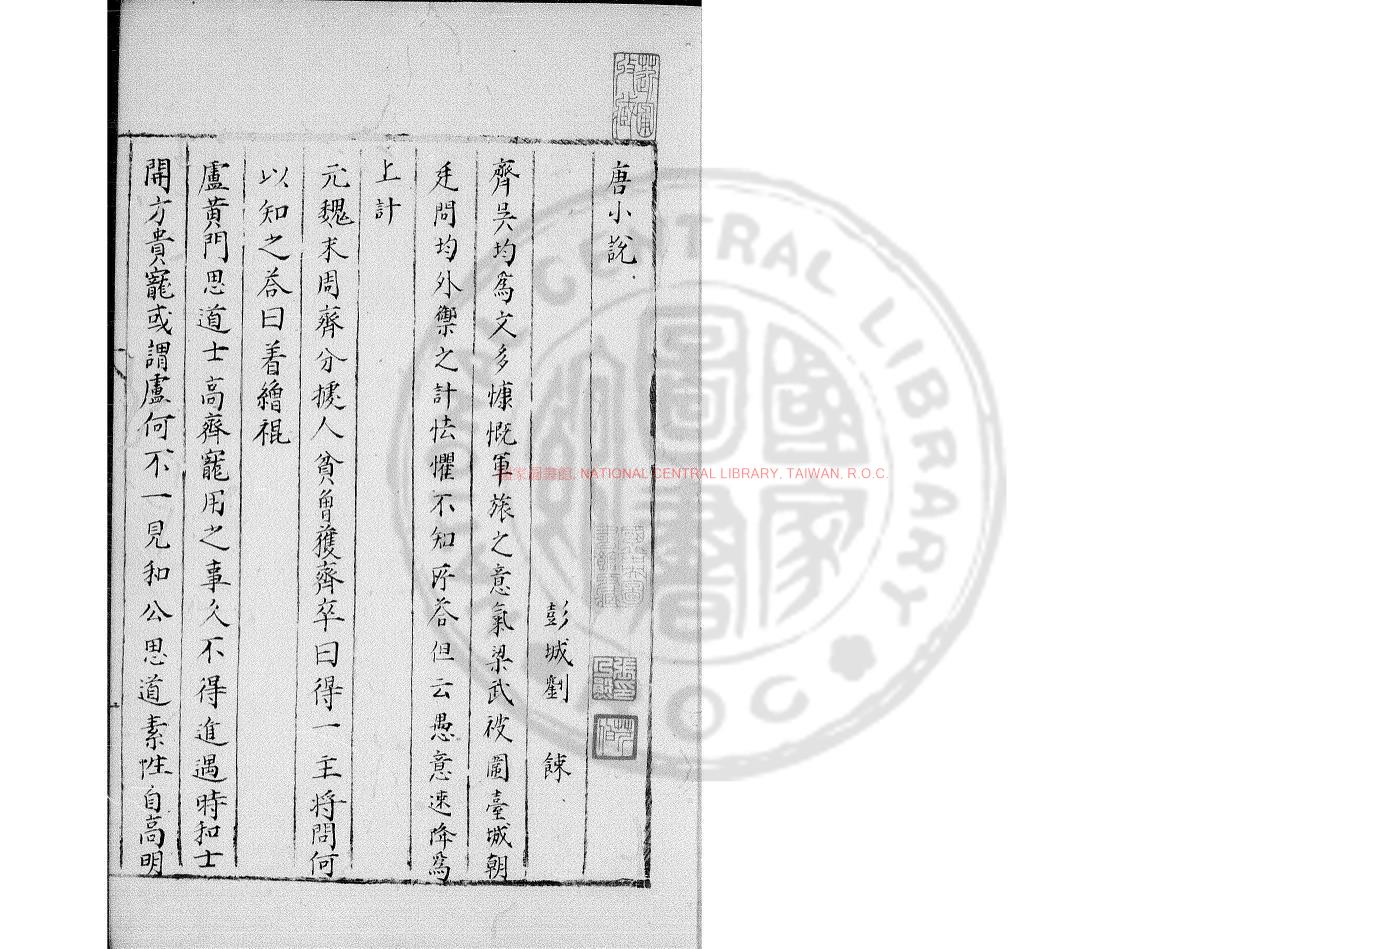 唐小說
彭城劉餗
齊吳均為文多慷慨軍旅之意氣梁武被圍臺城朝
廷問均外禦之計怯懼不知所荅但云愚意速降為
上計
元魏末周齊分據人貧甬獲齊卒曰得一主將問何
以知之荅曰着繒裩
盧黃門思道士高齊寵用之事久不得進遇時和士
開方貴寵或謂盧何不一見和公思道素性自高明
國家圖書館, NATIONAL CENTRAL LIBRARY, TAIWAN, R.O.C.